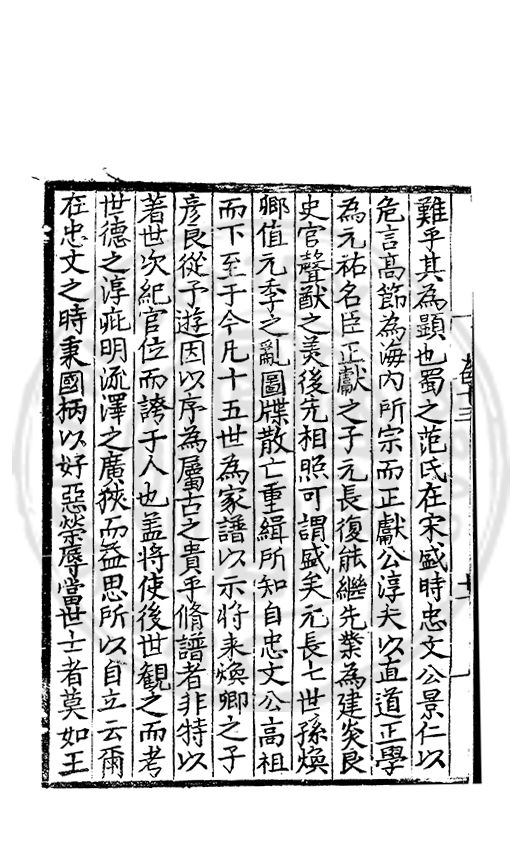 難乎其為顯也蜀之范氏在宋盛時忠文公景仁以
危言高節為海內所宗而正獻公淳夫以直道正學
為元祐名臣正獻之子元長復能繼先業為建炎良
史官聲猷之美後先相照可謂盛矣元長七世孫煥
卿值元季之亂圖牒散亡重緝所知自忠文公高祖
而下至于今凡十五世為家譜以示將来煥卿之子
彦良從予遊因以序為屬古之貴乎脩譜者非特以
著世次紀官位而誇于人也盖將使後世觀之而考
世德之淳疵明流澤之廣狹而益思所以自立云爾
在忠文之時秉國柄以好惡榮辱當世士者莫如王